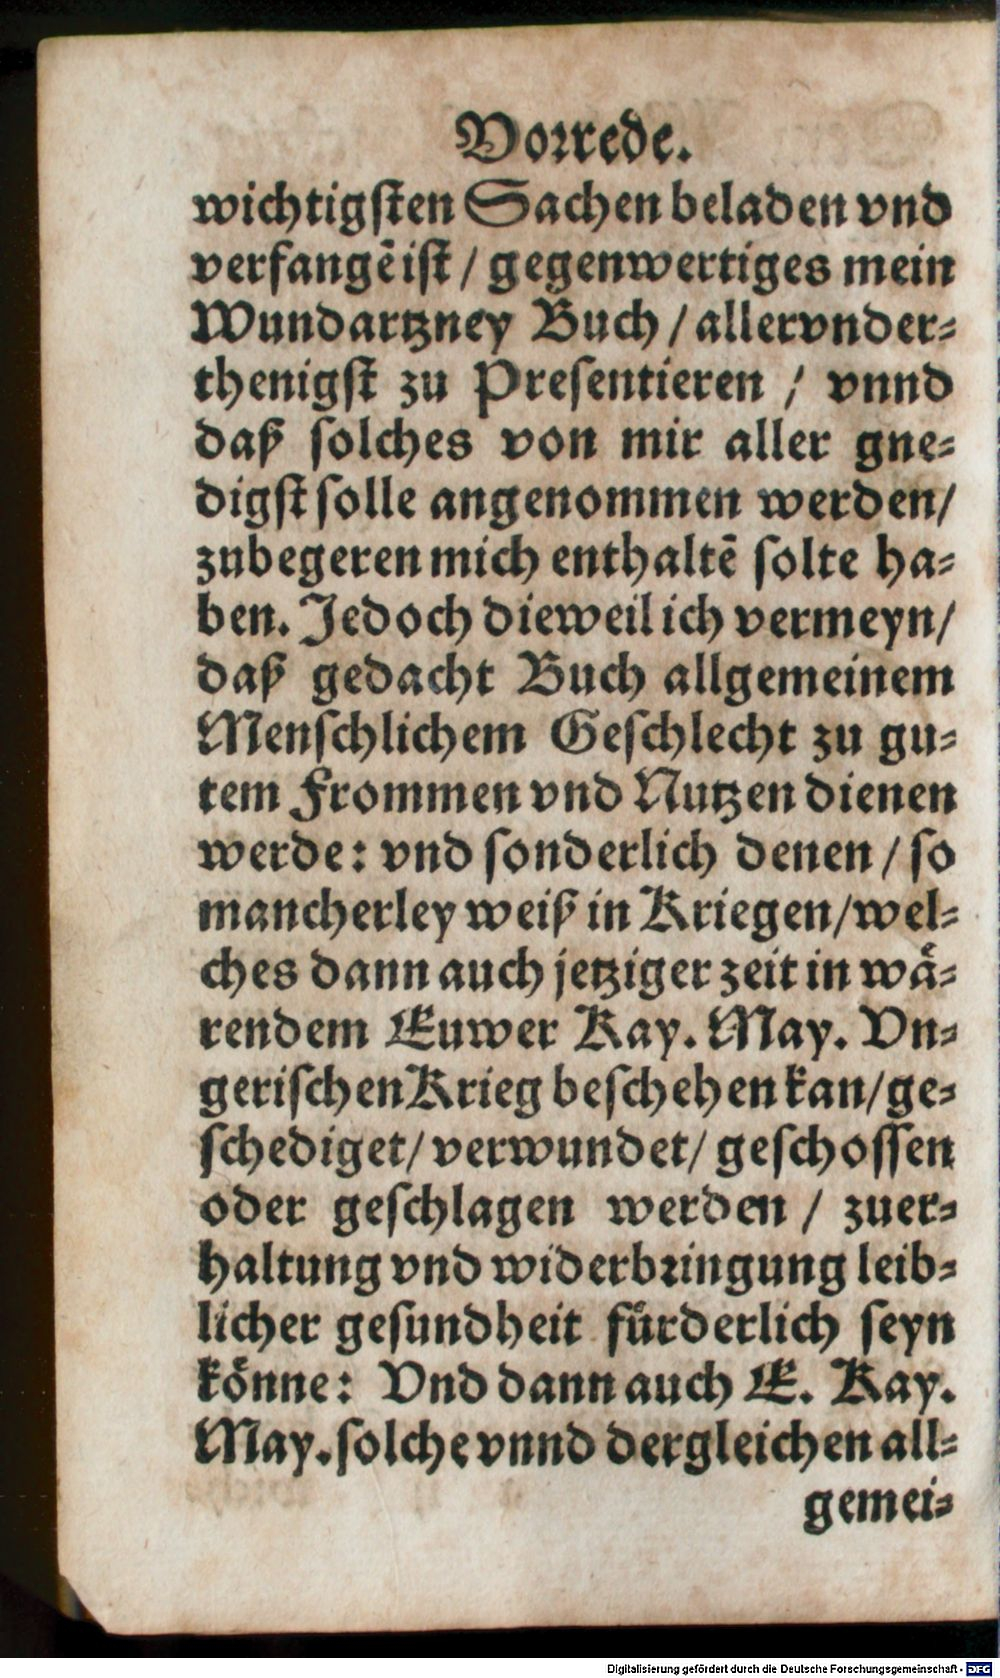 Vorrede.
wichtigsten Sachen beladen vnd
verfangẽ ist / gegenwertiges mein
Wundartzney Buch / allervnder-
thenigst zu Presentieren / vnnd
daß solches von mir aller gne-
digst solle angenommen werden/
zubegeren mich enthaltẽ solte ha-
ben. Jedoch dieweil ich vermeyn/
daß gedacht Buch allgemeinem
Menschlichem Geschlecht zu gu-
tem Frommen vnd Nutzen dienen
werde: vnd sonderlich denen / so
mancherley weiß in Kriegen/wel-
ches dann auch jetziger zeit in wåͤ-
rendem Euwer Kay. May. Vn-
gerischen Krieg beschehen kan/ge-
schediget/ verwundet/ geschossen
oder geschlagen werden / zuer-
haltung vnd widerbringung leib-
licher gesundheit fuͤrderlich seyn
koͤnne: Vnd dann auch E. Kay.
May. solche vnnd dergleichen all-
gemei-
Digitalisierung gefördert durch die Deutsche Forschungsgemeinschaft - DFG